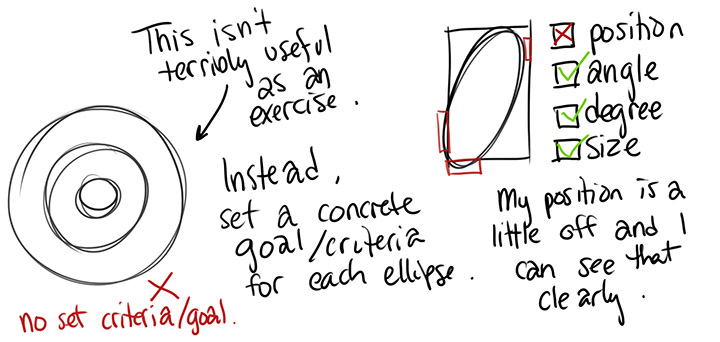 This isn't
terribly useful
as an
exercise.
no set criteria/goal.
Instead,
set a concrete
goal/criteria
for each ellipse.
position
angle
degree
size
My position is a
little off and I
can see that
clearly.